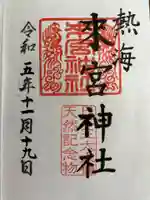 熱海
來宮神社
天然記念物
令和五年十一月十九日